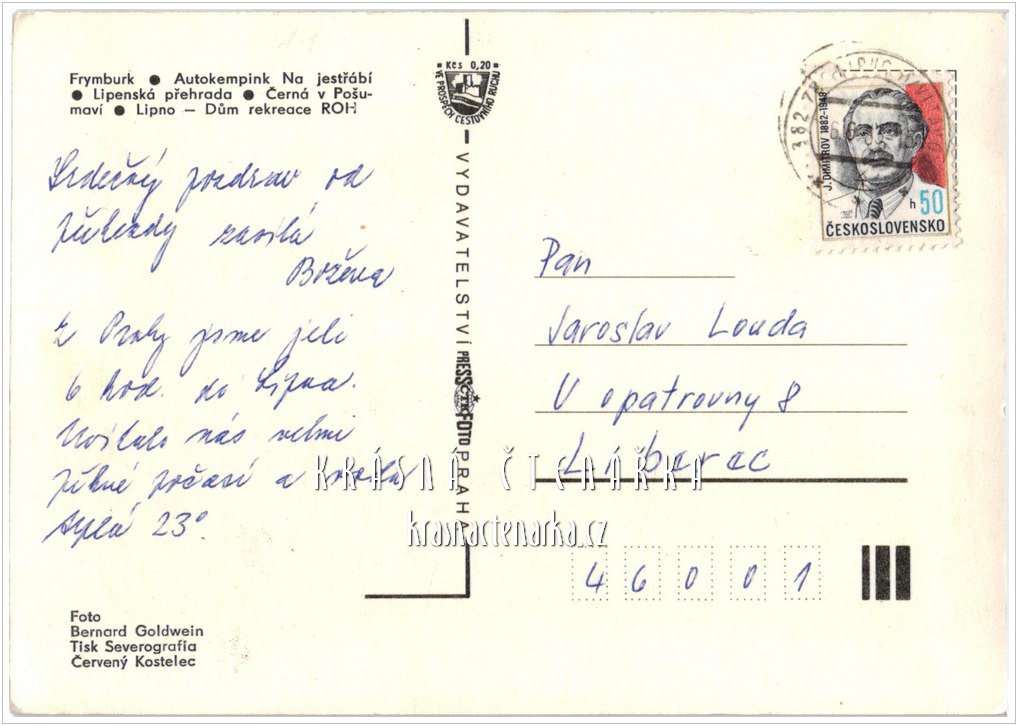 Frymburk ● Autokempink Na jestřábí
● Lipenská přehrada ● Černá v Pošu-
maví ● Lipno – Dům rekreace ROH
Srdečný pozdrav od
zasílá
Božena
Z Prahy jsme jeli
6 hod. do Lipna.
Uvítalo nás velmi
pěkné počasí a voda
teplá 23°.
Foto
Bernard Goldwein
Tisk Severografia
Červený Kostelec
Kčs 0,20
VE PROSPĚCH CESTOVNÍHO RUCHU
VYDAVATELSTVÍ PRESSFOTO PRAHA
ČTK
J. DIMITROV 1882-1949
h 50
ČESKOSLOVENSKO
382 78 LIPNO
Pan
Jaroslav Louda
U opatrovny 8
Liberec
46001
KRÁSNÁ ČTENÁŘKA
krasnactenarka.cz